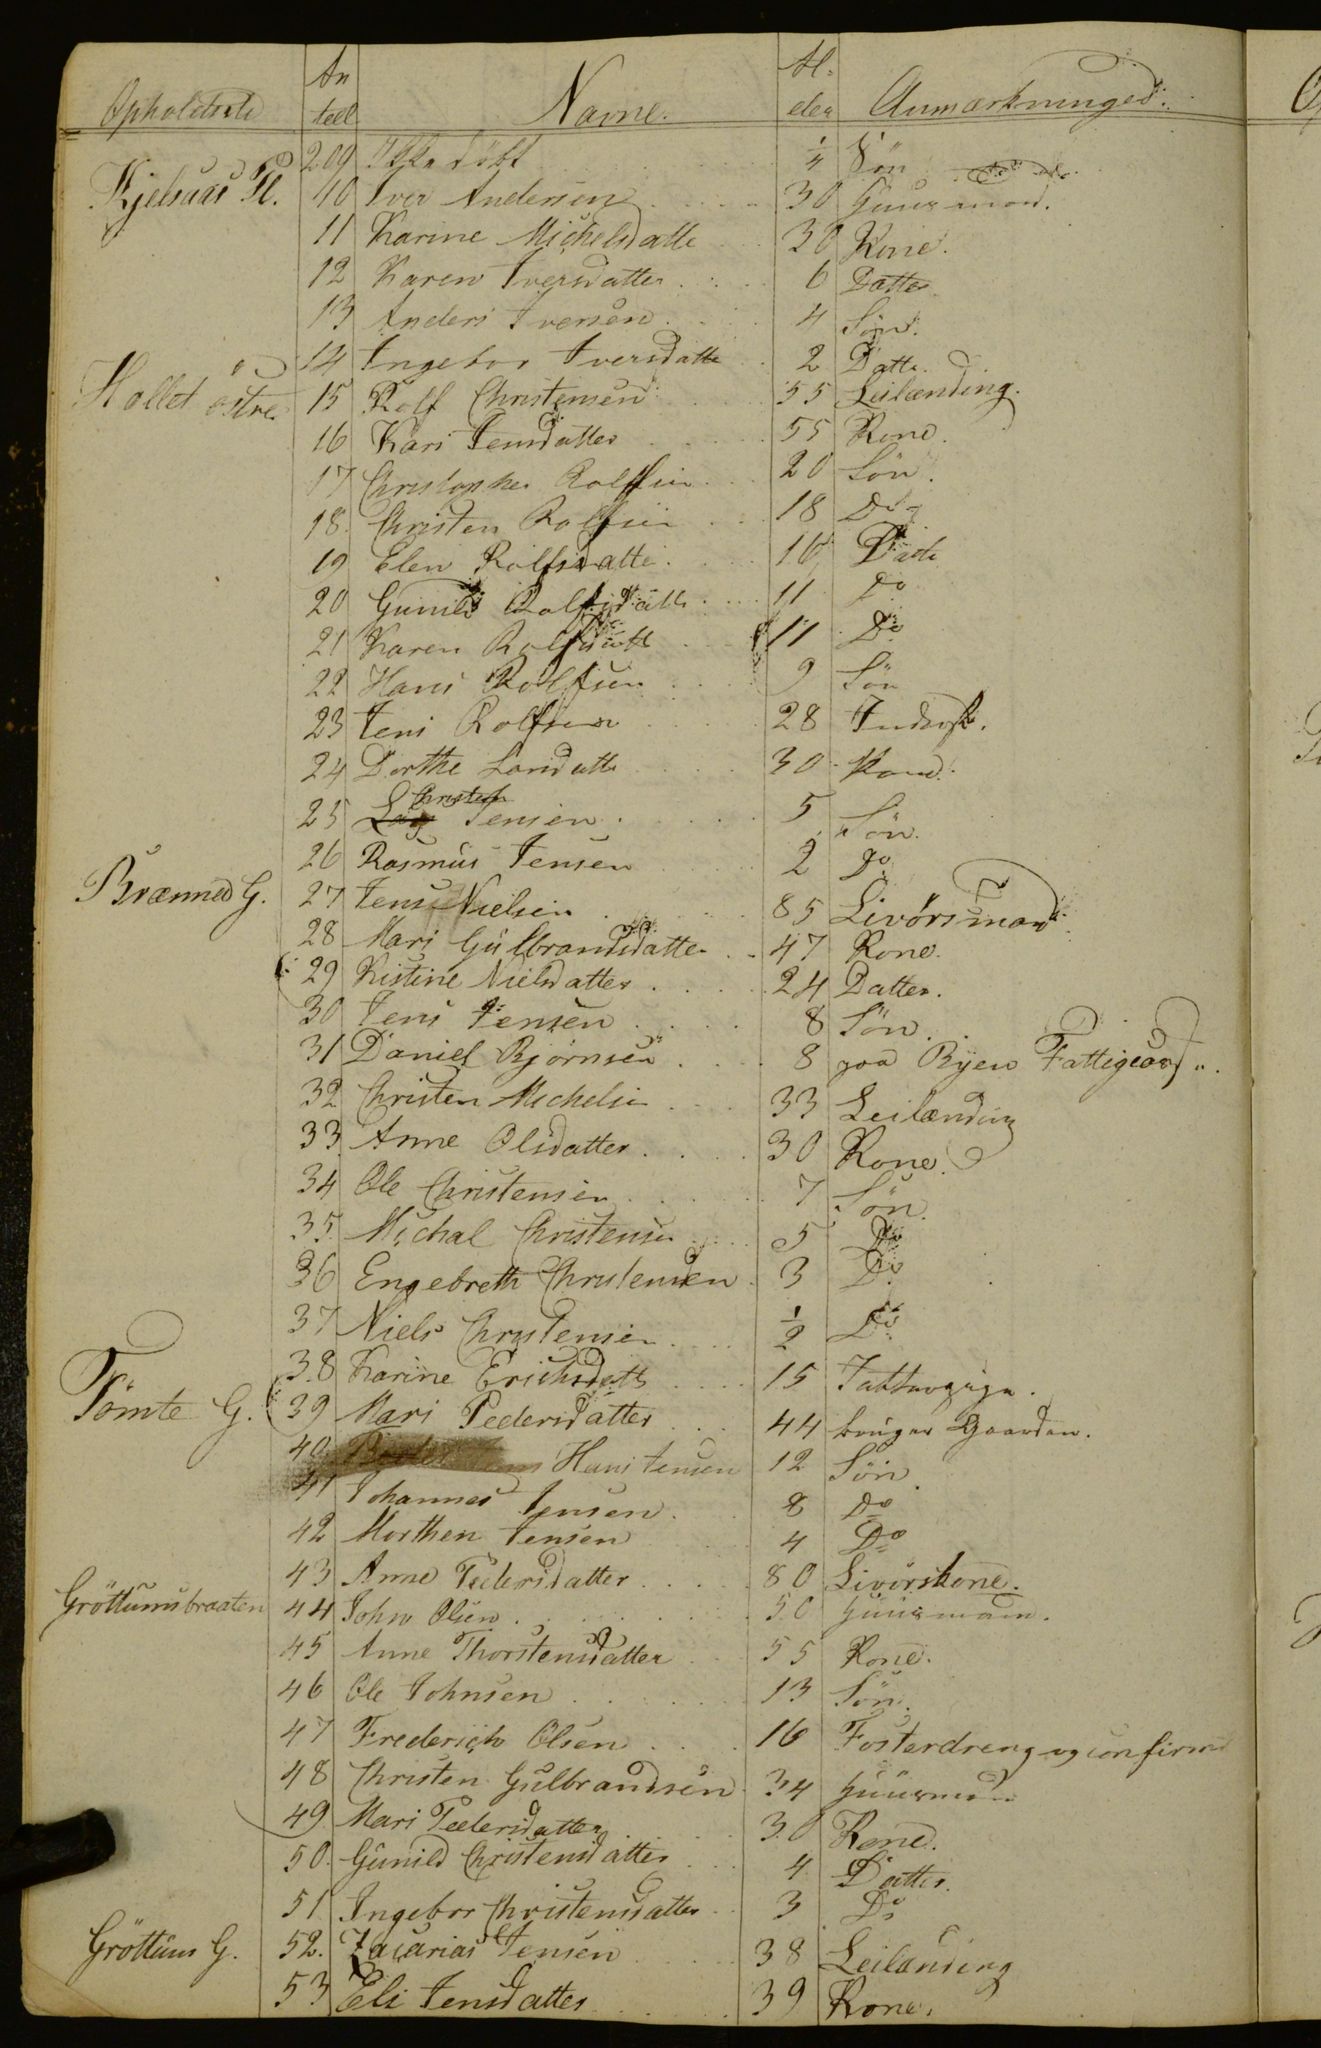 Opholdsste An teel Navne. Al- der Anmærkninger.
209 Ikke döbt 1/4 Sön
Kjelsaas Pl. 10 Iver Andersen 30 Huusmand.
11 Karine Michelsdatte 30 Kone.
12 Karen Iversdatter 6 Datter
13 Anders Iversen 4 Sön.
14 Ingebor Iversdatte 2 Datte.
Hollet östre 15 Rolf Christensen 55 Leilænding.
16 Kari Jensdatter 55 Kone.
17 Christopher Rolfsen 20 Sön.
18. Christen Rolfsen 18 Do
19 Elen Rolfsdatte 16 Datte
20 Gunild Rolfsdatte 11 Do
21 Karen Rolfsdatte 11 Do
22 Hans Rolfsen 9 Sön
23 Jens Rolfsen 28 Inderst.
24 Dorthe Larsdatte 30 Kone.
25 Christen Jensen 5 Sön.
26 Rasmus Jensen 2 Do
Brænned G. 27 Jens Nielsen 85 Livörsmand.
28 Mari Gulbrandsdatter 47 Kone.
29 Kistine Nielsdatter 24 Datter.
30 Jens Jensen 8 Sön.
31 Daniel Björnsen 8 paa Byen Fattigvæs.
32 Christen Michelsen 33 Leilænding
33. Anne Olsdatter 30 Kone.
34 Ole Christensen 7 Sön.
35. Michal Christensen 5 Do
36 Engebreth Christensen 3 Do
37 Niels Christensen 1/2 Do
38 Karine Erichsdatte 15
Tömte G. 39 Mari Pedersdatter 44 bruger Gaarden.
40 Hans Jensen 12 Sön
41 Johannes Jensen 8 Do
42 Morthen Jensen 4 Do
43 Anne Pedersdatter 80 Livörskone.
Gröttumsbraaten 44 John Olsen 50 Huusmand.
45 Anne Thorstensdatter 55 Kone.
46 Ole Johnsen 13 Sön.
47 Frederich Olsen 16 Fosterdreng og confirmd
48 Christen Gulbrandsen 34 Huusmand
49 Mari Pedersdatter 30 Kone.
50. Gunild Christensdatter 4 Datter.
51 Ingebor Christensdatter 3 Do
Gröttum G. 52. Zacarias Jensen 38 Leilænding
53 Eli Jensdatter 39 Kone.